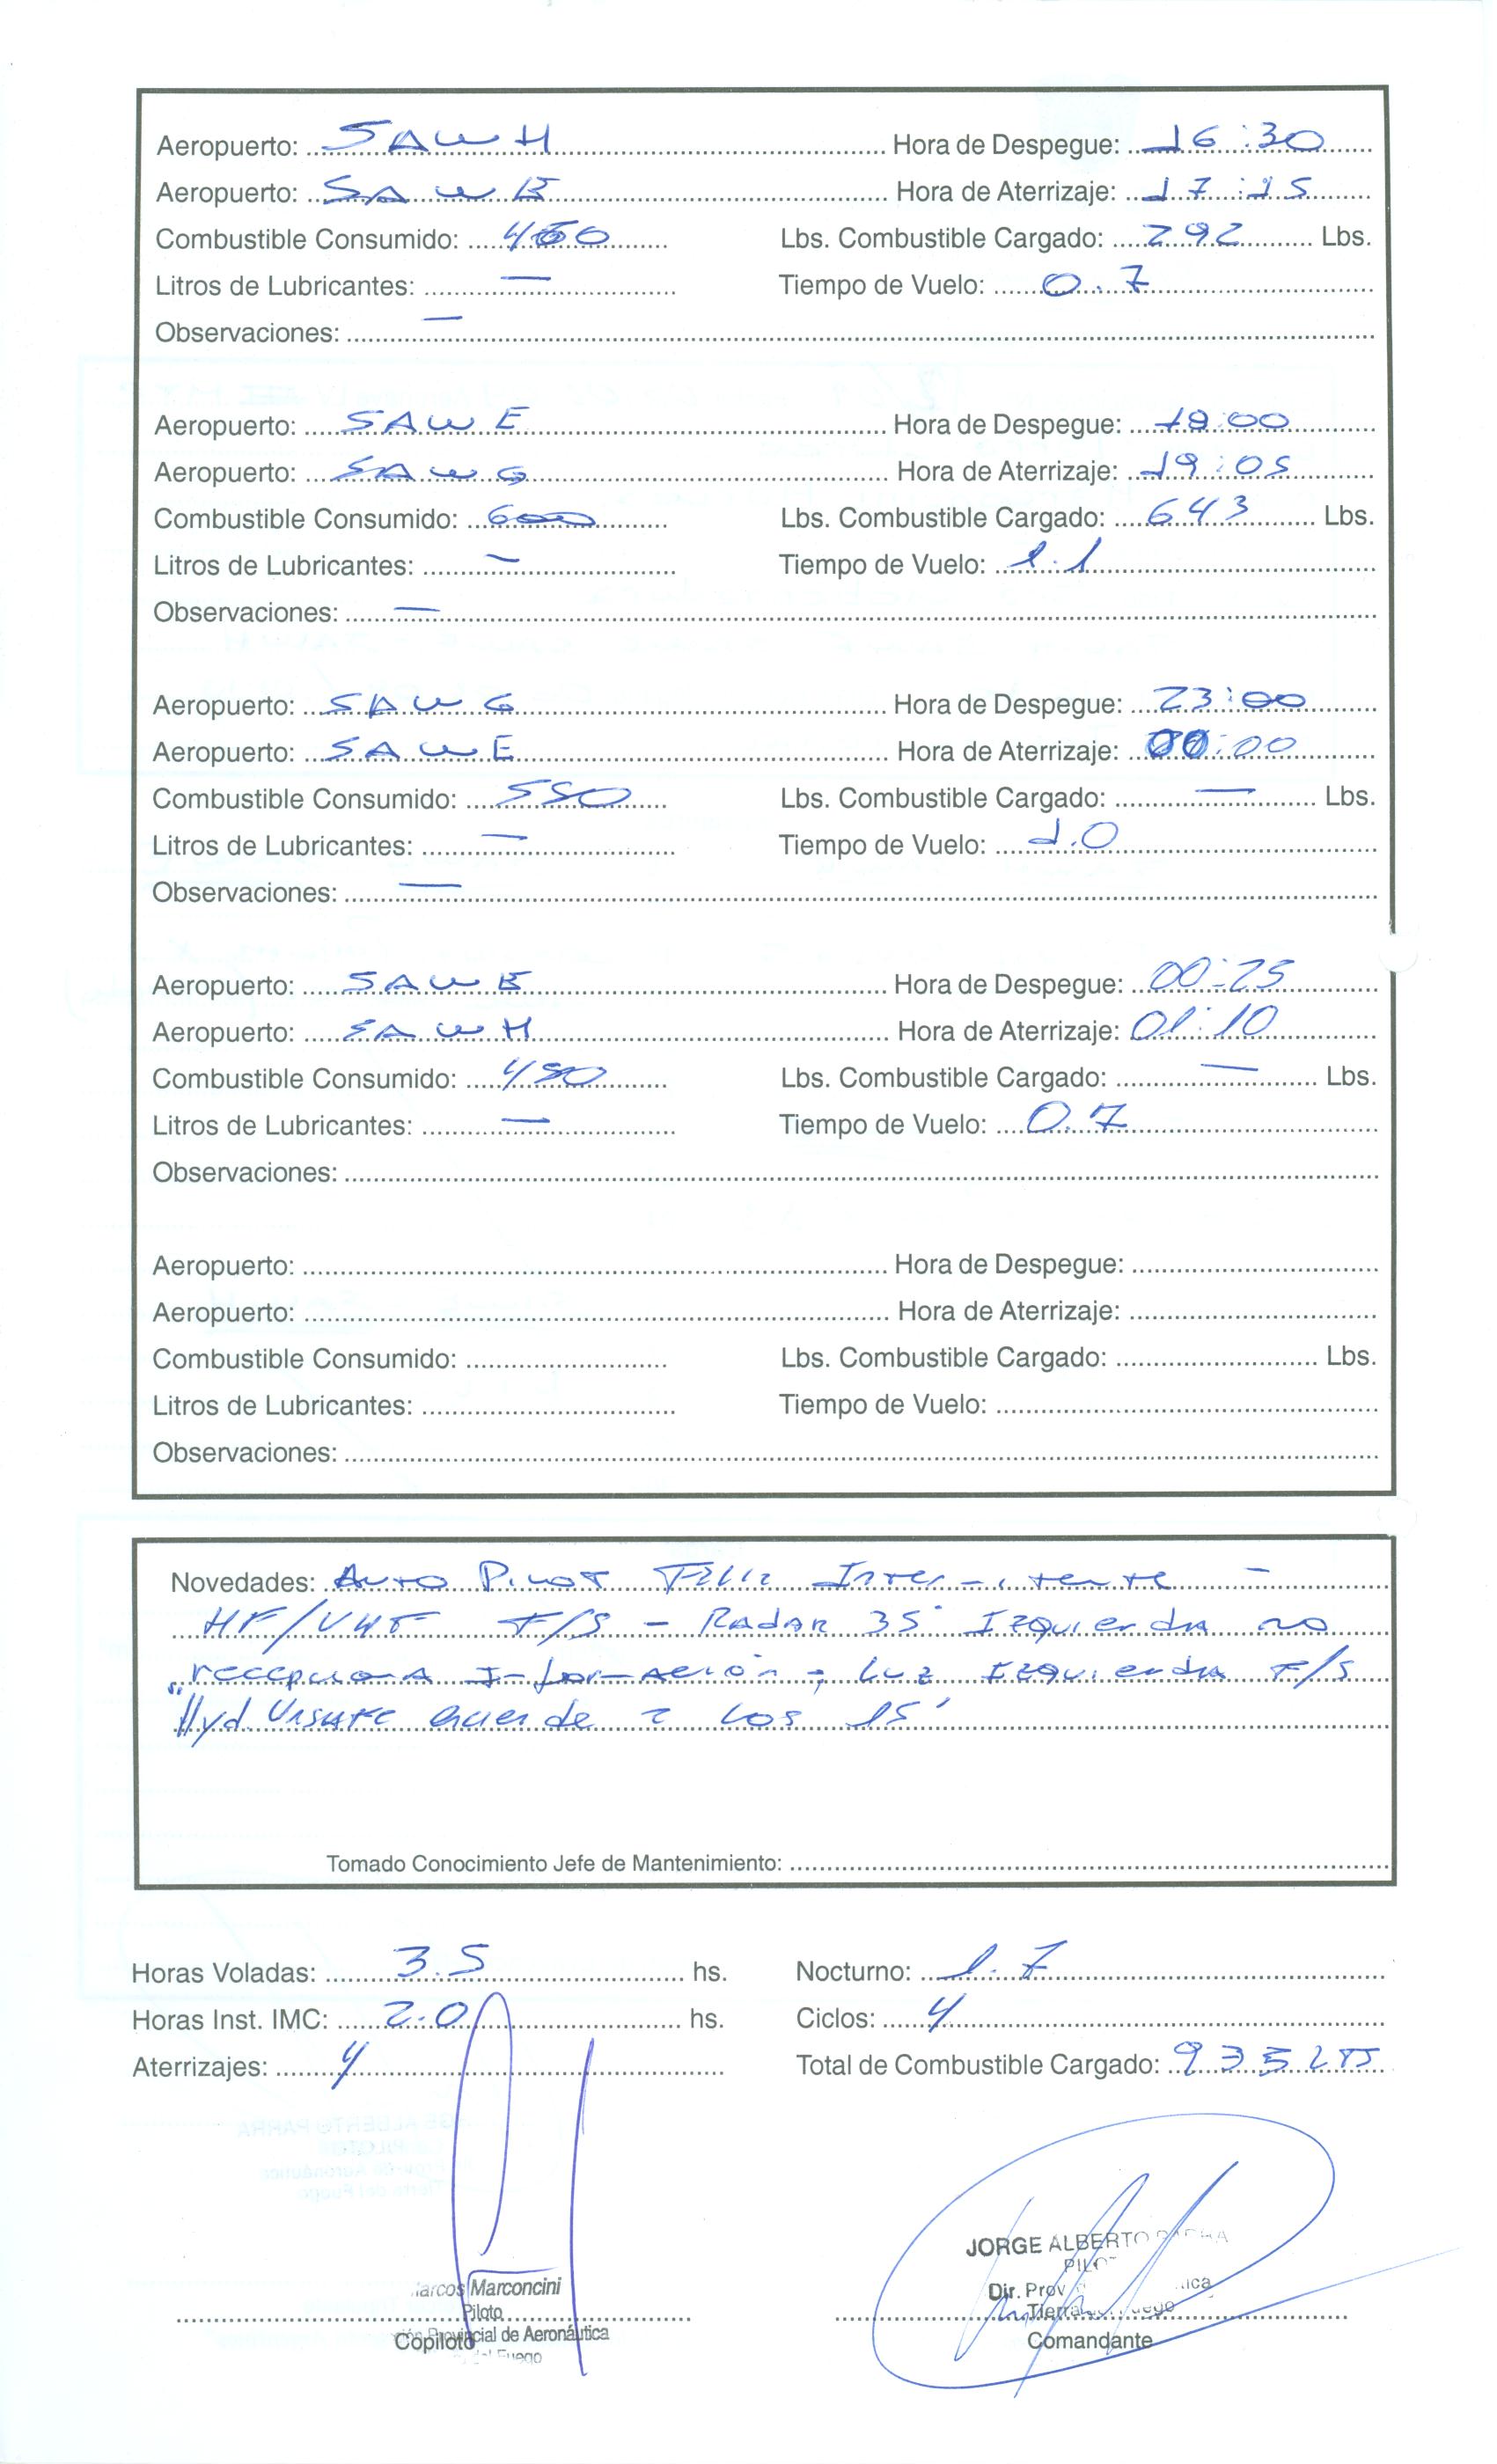 Aeropuerto: SAWH Hora de Despegue: 16:30
Aeropuerto: SAWE Hora de Aterrizaje: 17:15
Combustible Consumido: Lbs. Combustible Cargado: 292 Lbs.
Litros de Lubricantes: — Tiempo de Vuelo: 0.7
Observaciones: —
Aeropuerto: SAWE Hora de Despegue: 18:00
Aeropuerto: SAWG Hora de Aterrizaje: 19:05
Combustible Consumido: 600 Lbs. Combustible Cargado: 643 Lbs.
Litros de Lubricantes: — Tiempo de Vuelo: 1.1
Observaciones: —
Aeropuerto: SAWG Hora de Despegue: 23:00
Aeropuerto: SAWE Hora de Aterrizaje: 00:00
Combustible Consumido: 550 Lbs. Combustible Cargado: — Lbs.
Litros de Lubricantes: — Tiempo de Vuelo: 1.0
Observaciones: —
Aeropuerto: SAWE Hora de Despegue: 00:25
Aeropuerto: SAWH Hora de Aterrizaje: 01:10
Combustible Consumido: 450 Lbs. Combustible Cargado: — Lbs.
Litros de Lubricantes: — Tiempo de Vuelo: 0.7
Observaciones:
Aeropuerto: Hora de Despegue:
Aeropuerto: Hora de Aterrizaje:
Combustible Consumido: Lbs. Combustible Cargado: Lbs.
Litros de Lubricantes: Tiempo de Vuelo:
Observaciones:
Novedades: Auto Pilot Intermitente —
HF/VHF F/S — Radar 35° Izquierda no
recepciona Información, Luz Izquierda F/S
"Hyd enciende a los 15'
Tomado Conocimiento Jefe de Mantenimiento:
Horas Voladas: 3.5 hs. Nocturno: 1.7
Horas Inst. IMC: 2.0 hs. Ciclos: 4
Aterrizajes: 4 Total de Combustible Cargado: 935 LTS
JORGE ALBERTO PARRA
PILOTO
Marcos Marconcini
Dir. Prov
Piloto
Tierra del Fuego
Provincial de Aeronáutica
Copiloto
Comandante
del Fuego